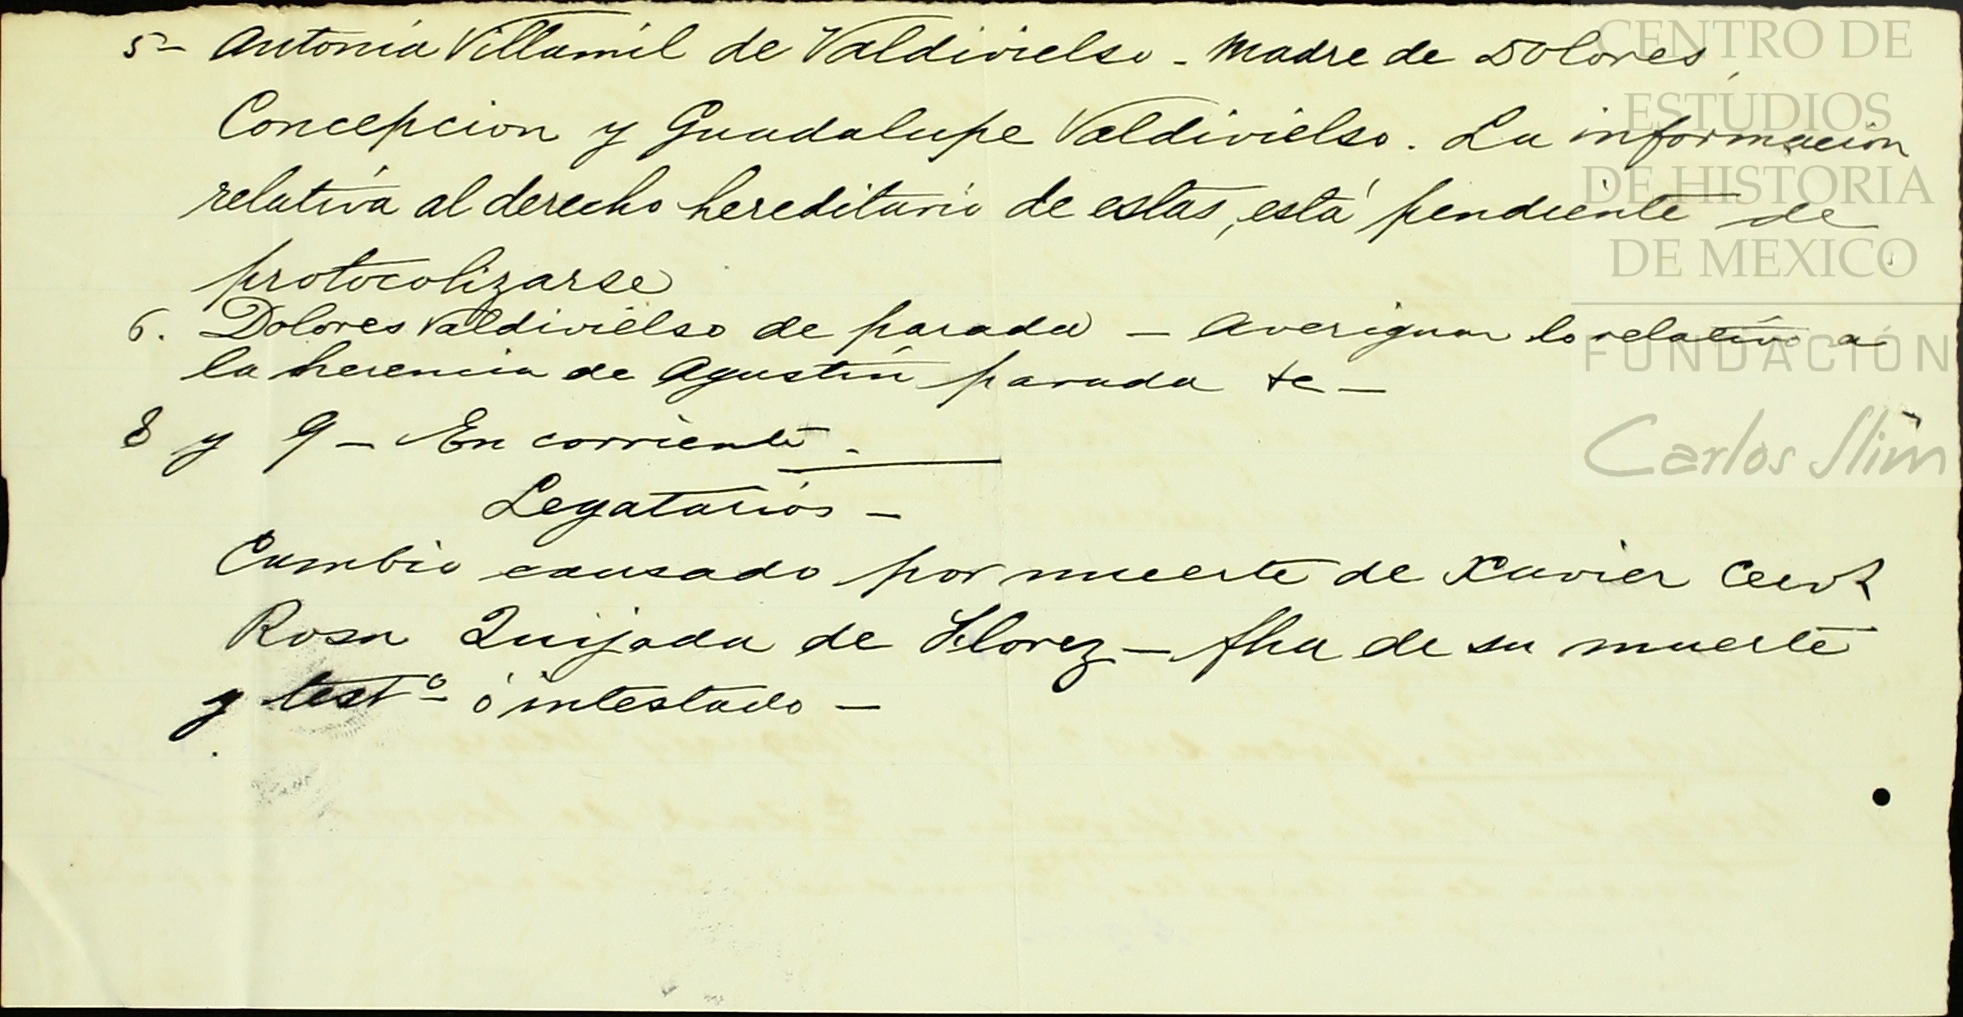 5- Antonia Villamil de Valdivielso - Madre de Dolores,
Concepcion y Guadalupe Valdivielso. La informacion
relativa al derecho hereditario de estas, está pendiente de
protocolizarse
6. Dolores Valdivielso de parada - Averiguar lo relativo a
la herencia de Agustin parada &c -
8 y 9 - En corriente.
Legatarios -
Cambio causado por muerte de Xavier
Rosa Quijada de Florez - fha de su muerte
y testº ó intestado -
CENTRO DE
ESTUDIOS
DE HISTORIA
DE MEXICO
FUNDACIÓN
Carlos Slim